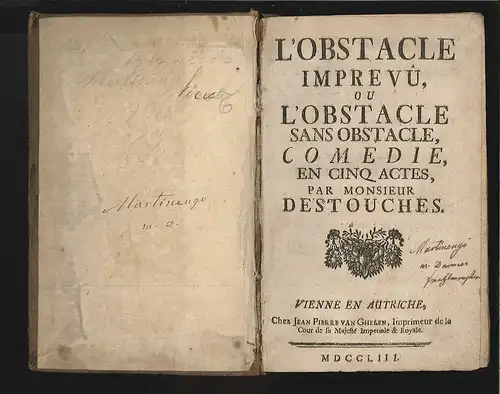 Martinengo
m. d.
L'OBSTACLE
IMPREVÛ,
OU
L'OBSTACLE
SANS OBSTACLE,
COMEDIE,
EN CINQ ACTES,
PAR MONSIEUR
DESTOUCHES.
Martinengo
m.
VIENNE EN AUTRICHE,
Chez JEAN PIERRE VAN GHELEN, Imprimeur de la
Cour de sa Majesté Imperiale & Royale.
MDCCLIII.